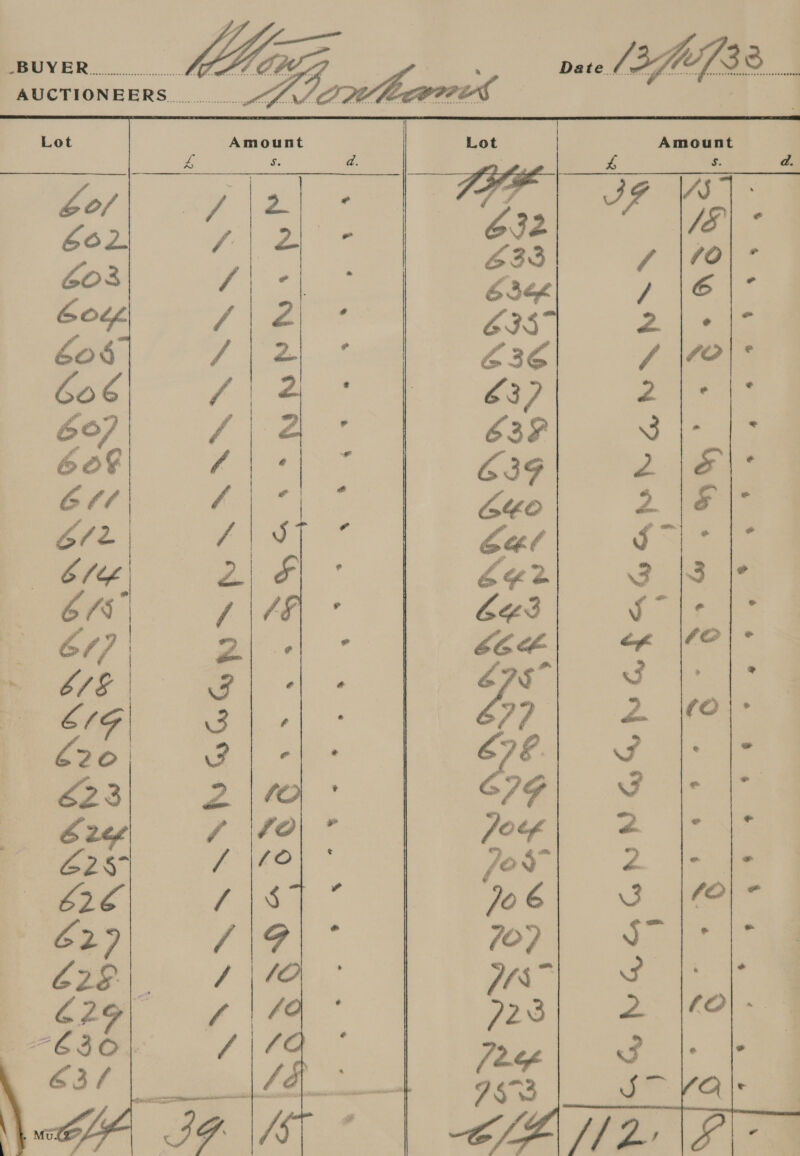 BUYER
AUCTIONEERS Bonhams
Date 13/10/33
Lot Amount
£ s. d.
601 1 2 -
602 1 2 -
603 1 - -
604 1 2 -
605 1 2 -
606 1 2 -
607 1 2 -
608 1 - -
611 1 - -
612 1 5 -
614 2 8 -
615 1 18 -
617 2 - -
618 3 - -
619 3 - -
620 3 - -
623 2 10 -
624 1 10 -
625 1 10 -
626 1 5 -
627 1 9 -
628 1 10 -
629 1 10 -
630 1 10 -
631 18 -
C/F 39 15 -
Lot Amount
£ s. d.
B/F 39 15 -
632 18 -
633 1 10 -
634 1 6 -
635 2 - -
636 1 10 -
637 2 - -
638 3 - -
639 2 8 -
640 2 8 -
641 5 - -
642 3 3 -
643 5 - -
664 4 10 -
675 3 - -
677 2 10 -
678 3 - -
679 3 - -
704 2 - -
705 2 - -
706 3 10 -
707 5 - -
715 3 - -
723 2 10 -
724 3 - -
753 5 10 -
C/F 112 8 -